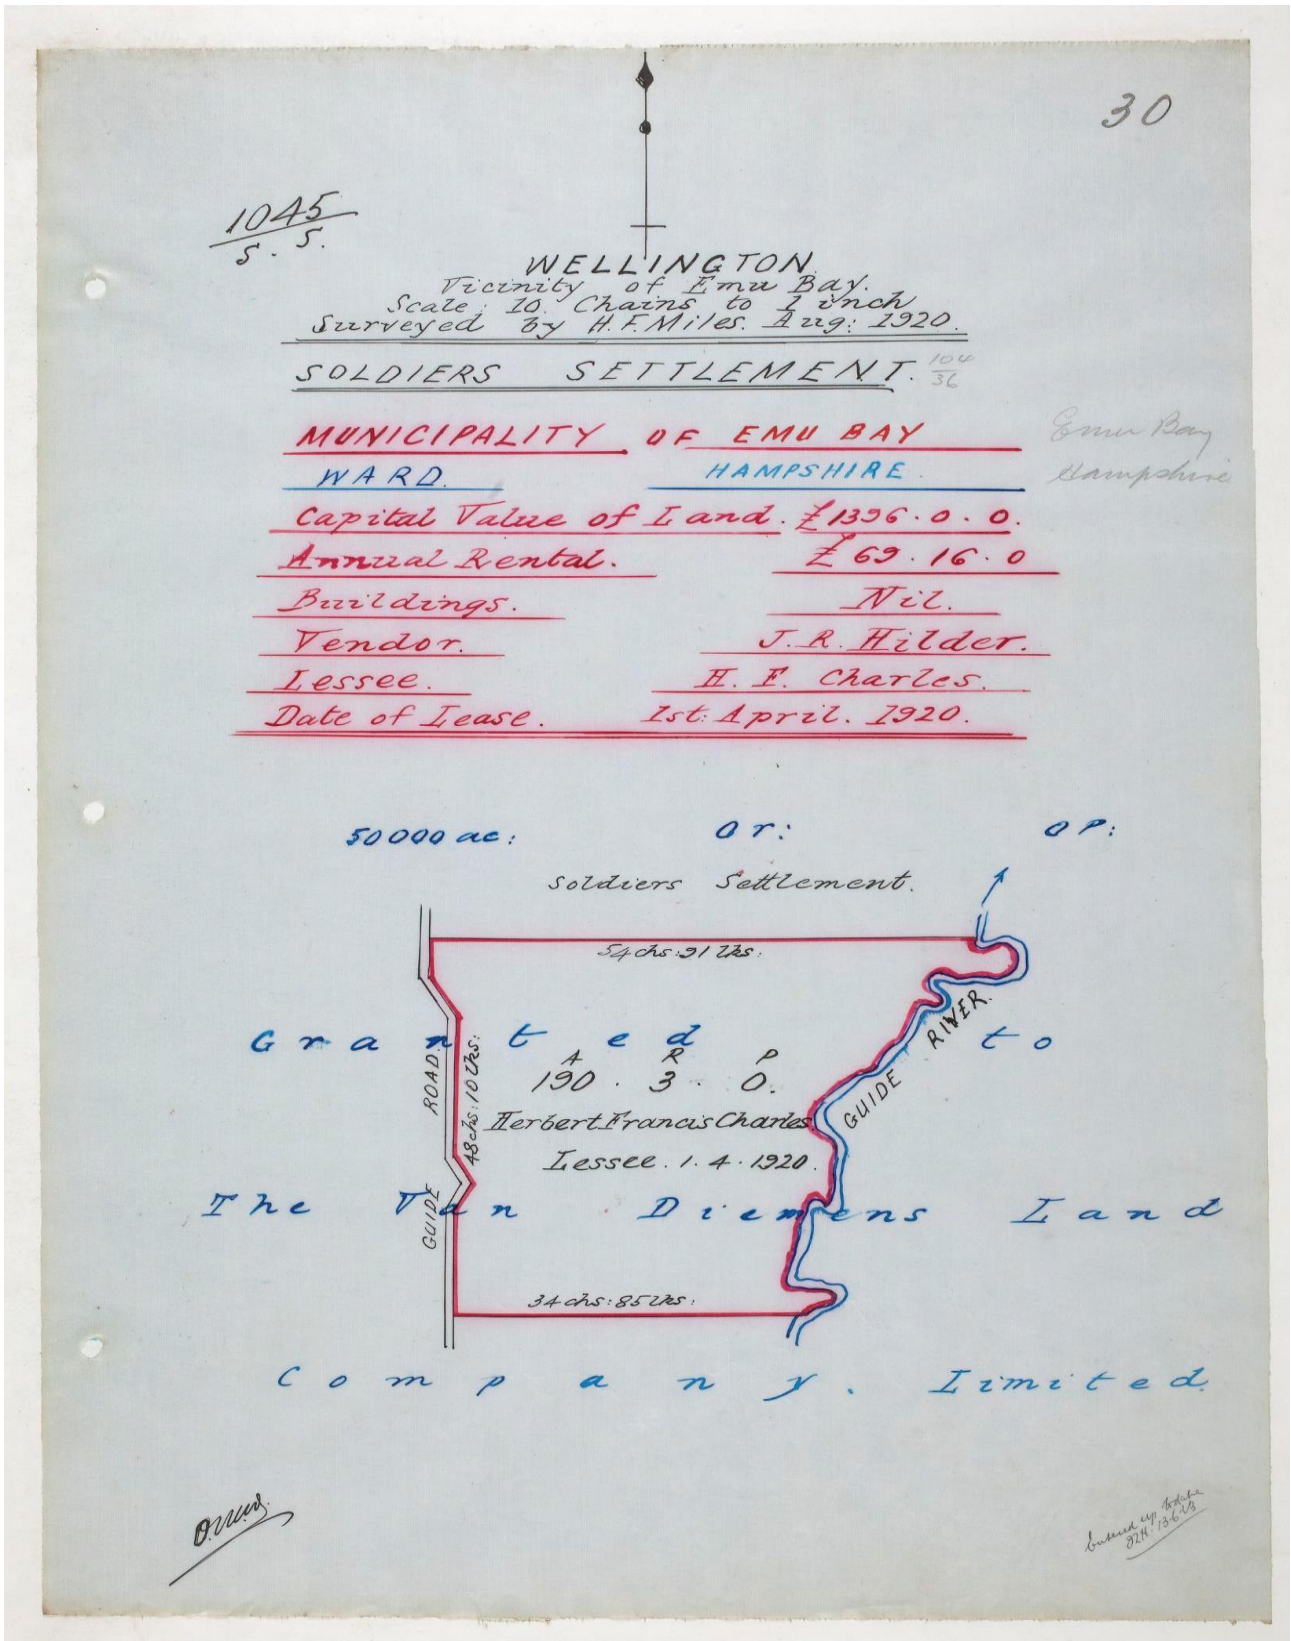 30
1045
S. S.
WELLINGTON.
Vicinity of Emu Bay.
Scale: 10. Chains to 1 inch
Surveyed by H. F. Miles. Aug: 1920.
SOLDIERS SETTLEMENT. 104
36
MUNICIPALITY OF EMU BAY
Emu Bay
WARD. HAMPSHIRE.
Hampshire
Capital Value of Land. £1396.0.0.
Annual Rental. £69.16.0
Buildings. Nil.
Vendor. J. R. Hilder.
Lessee. H. F. Charles.
Date of Lease. 1st: April. 1920.
50000 ac: Or: OP:
Soldiers Settlement.
54 chs: 91 lks:
GUIDE RIVER.
Granted to
A R P
190. 3. 0.
GUIDE ROAD.
48 chs: 10 lks:
Herbert Francis Charles.
Lessee. 1.4.1920.
The Van Diemens Land
34 chs: 85 lks:
Company. Limited.
Entered up to date
13-6-23